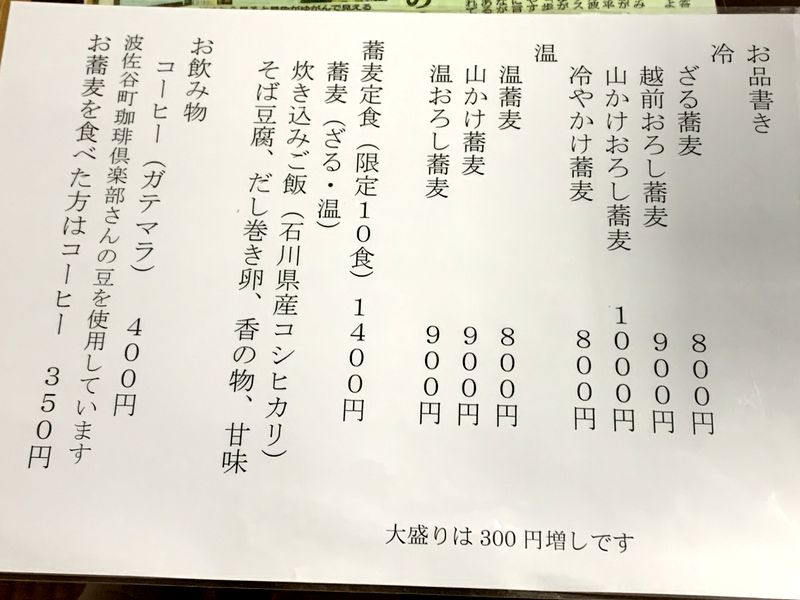 お品書き
冷
ざる蕎麦 800円
越前おろし蕎麦 900円
山かけおろし蕎麦 1000円
冷やかけ蕎麦 800円
温
温蕎麦 800円
山かけ蕎麦 900円
温おろし蕎麦 900円
蕎麦定食（限定10食）1400円
蕎麦（ざる・温）
炊き込みご飯（石川県産コシヒカリ）
そば豆腐、だし巻き卵、香の物、甘味
お飲み物
コーヒー（ガテマラ） 400円
波佐谷町珈琲倶楽部さんの豆を使用しています
お蕎麦を食べた方はコーヒー 350円
大盛りは300円増しです